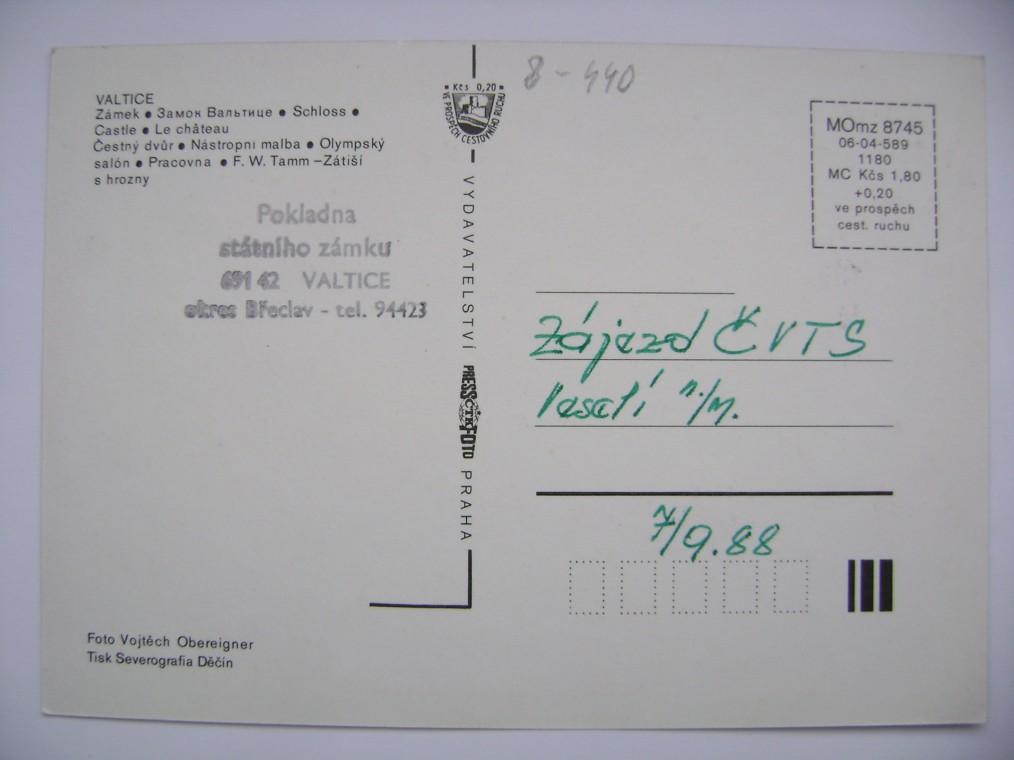 VALTICE
Zámek • Замок Вальтице • Schloss •
Castle • Le château
Čestný dvůr • Nástropní malba • Olympský
salón • Pracovna • F. W. Tamm –Zátiší
s hrozny
Pokladna
státního zámku
691 42 VALTICE
okres Břeclav - tel. 94423
Foto Vojtěch Obereigner
Tisk Severografia Děčín
Kčs 0,20
VE PROSPĚCH CESTOVNÍHO RUCHU
VYDAVATELSTVÍ PRESSFOTO PRAHA
ČTK
8-440
MOmz 8745
06-04-589
1180
MC Kčs 1,80
+0,20
ve prospěch
cest. ruchu
Zájezd ČVTS
Veselí n./M.
7/9.88